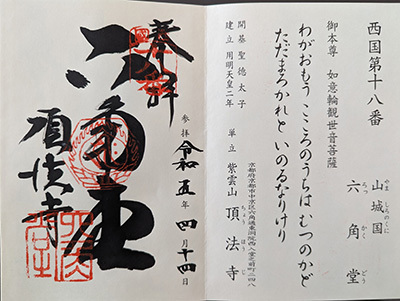 西国第十八番
山城国
やましろのくに
六角堂
ろっかくどう
御本尊 如意輪観世音菩薩
わがおもう こころのうちは むつのかど
ただまろかれと いのるなりけり
開基 聖徳太子
建立 用明天皇二年
単立 紫雲山 頂法寺
ちょうほうじ
京都府京都市中京区六角通東洞院西入堂之前町二四八
奉拝
参拝 令和五年 四月十四日
六角堂
頂法寺